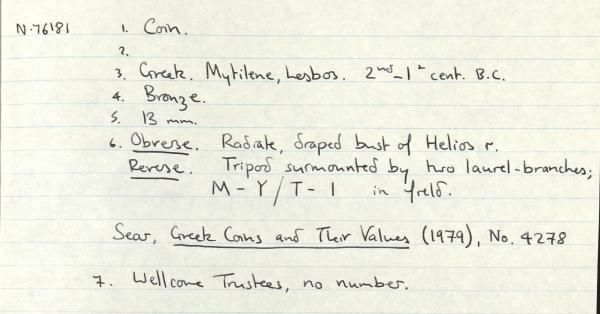 N.76181 1. Coin.
2.
3. Greek. Mytilene, Lesbos. 2nd–1st cent. B.C.
4. Bronze.
5. 13 mm.
6. Obverse. Radiate, draped bust of Helios r.
Reverse. Tripod surmounted by two laurel-branches;
M – Y / T – I in field.
Sear, Greek Coins and Their Values (1979), No. 4278
7. Wellcome Trustees, no number.